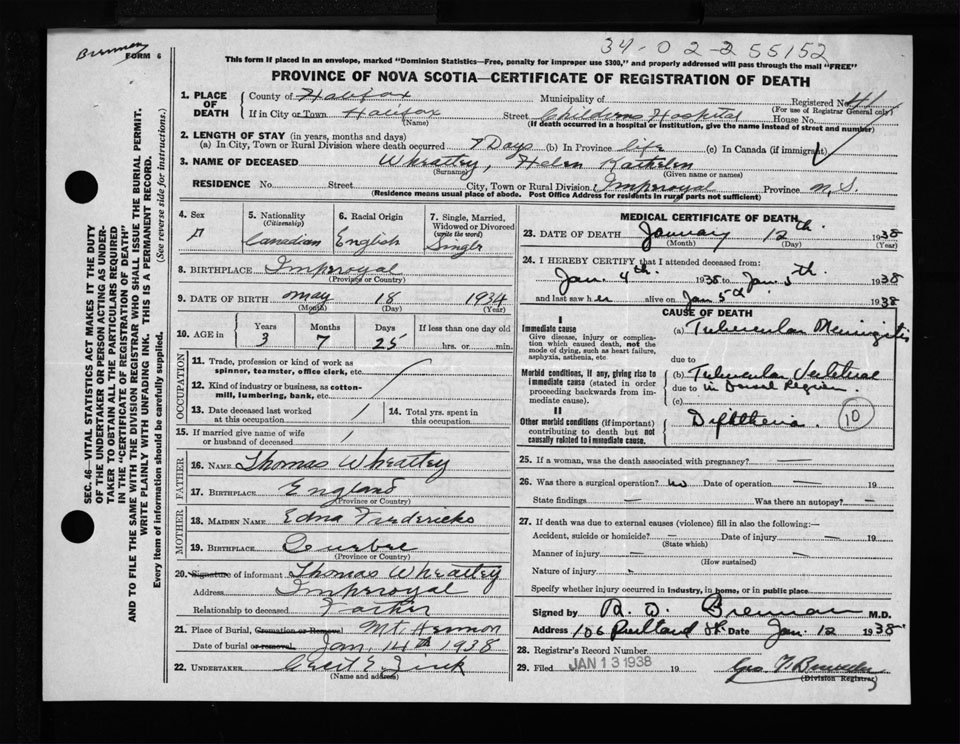 Brennan
FORM 6
34-02-2 55152
This form if placed in an envelope, marked "Dominion Statistics—Free, penalty for improper use $300," and properly addressed will pass through the mail "FREE"
PROVINCE OF NOVA SCOTIA—CERTIFICATE OF REGISTRATION OF DEATH
SEC. 46—VITAL STATISTICS ACT MAKES IT THE DUTY
OF THE UNDERTAKER OR PERSON ACTING AS UNDER-
TAKER TO OBTAIN ALL THE PARTICULARS REQUIRED
IN THE "CERTIFICATE OF REGISTRATION OF DEATH"
AND TO FILE THE SAME WITH THE DIVISION REGISTRAR WHO SHALL ISSUE THE BURIAL PERMIT.
WRITE PLAINLY WITH UNFADING INK. THIS IS A PERMANENT RECORD.
Every item of information should be carefully supplied. (See reverse side for instructions.)
1. PLACE OF DEATH County of Halifax Municipality of Registered No.
(For use of Registrar General only)
If in City or Town Halifax Street Childrens Hospital House No.
(Name) (If death occurred in a hospital or institution, give the name instead of street and number)
2. LENGTH OF STAY (in years, months and days)
(a) In City, Town or Rural Division where death occurred 7 Days (b) In Province life (c) In Canada (if immigrant)
3. NAME OF DECEASED Wheatley, Helen Kathelen
(Surname) (Given name or names)
RESIDENCE No. Street City, Town or Rural Division Imperoyal Province N.S.
(Residence means usual place of abode. Post Office Address for Residents in rural parts not sufficient)
4. Sex F
5. Nationality (Citizenship) Canadian
6. Racial Origin English
7. Single, Married, Widowed or Divorced (write the word) Single
8. BIRTHPLACE Imperoyal
(Province or Country)
9. DATE OF BIRTH May 18 1934
(Month) (Day) (Year)
10. AGE IN Years 3 Months 7 Days 25 If less than one day old hrs. or min.
OCCUPATION
11. Trade, profession or kind of work as spinner, teamster, office clerk, etc.
12. Kind of industry or business, as cotton-mill, lumbering, bank, etc.
13. Date deceased last worked at this occupation
14. Total yrs. spent in this occupation
15. If married give name of wife or husband of deceased
FATHER
16. NAME Thomas Wheatley
17. BIRTHPLACE England
(Province or Country)
MOTHER
18. MAIDEN NAME Edna Fredericks
19. BIRTHPLACE Quebec
(Province or Country)
20. Signature of informant Thomas Wheatley
Address Imperoyal
Relationship to deceased Father
21. Place of Burial, Cremation or Removal Mt. Hermon
Date of burial or removal Jan. 14th 1938
22. UNDERTAKER Cecil E. Zink
(Name and address)
MEDICAL CERTIFICATE OF DEATH
23. DATE OF DEATH January 12th 1938
(Month) (Day) (Year)
24. I HEREBY CERTIFY that I attended deceased from:
Jan. 4th 1938 to Jan 5th 1938
and last saw her alive on Jan 5th 1938
CAUSE OF DEATH
I
Immediate cause
Give disease, injury or complication which caused death, not the mode of dying, such as heart failure, asphyxia, asthenia, etc.
(a) Tubercular Meningitis
due to
Morbid conditions, if any, giving rise to immediate cause (stated in order proceeding backwards from immediate cause).
(b) Tubercular
due to in Dorsal Region
(c)
II
Other morbid conditions (if important) contributing to death but not causally related to immediate cause.
Diphtheria. 10
25. If a woman, was the death associated with pregnancy? —
26. Was there a surgical operation? no Date of operation —
State findings — Was there an autopsy? —
27. If death was due to external causes (violence) fill in also the following:—
Accident, suicide or homicide? — Date of injury —
(State which)
Manner of injury —
(How sustained)
Nature of injury
Specify whether injury occurred in industry, in home, or in public place
Signed by R. D. Brennan M.D.
Address 106 Date Jan. 12 1938
28. Registrar's Record Number
29. Filed JAN 13 1938 19 Geo.
(Division Registrar)